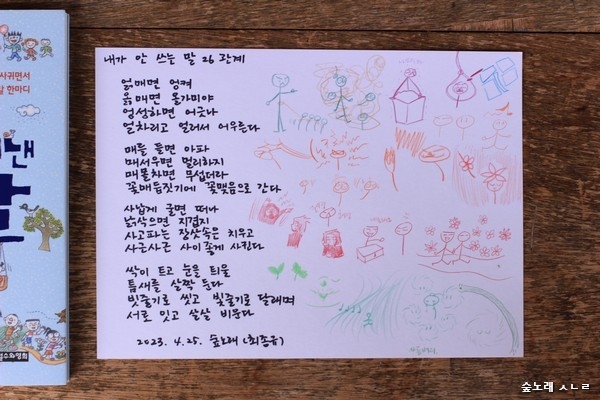 내가 안 쓰는 말 26 관계
얽매면 엉켜
옭매면 올가미야
엉성하면 어긋나
얼차리고 얼러서 어우른다
매를 들면 아파
매서우면 멀리하지
매몰차면 무섭더라
꽃매듭짓기에 꽃맺음으로 간다
사납게 굴면 떠나
낡삭으면 지겹지
사고파는 잘삿속은 치우고
사근사근 사이좋게 사귄다
싹이 트고 눈을 틔울
틈새를 살짝 둔다
빗줄기로 씻고 빛줄기로 달래며
서로 잇고 살살 비운다
2023. 4. 25. 숲노래 (최종규)
사귀면서
말 한마디
낸
철수와영희
숲노래 ㅅㄴㄹ